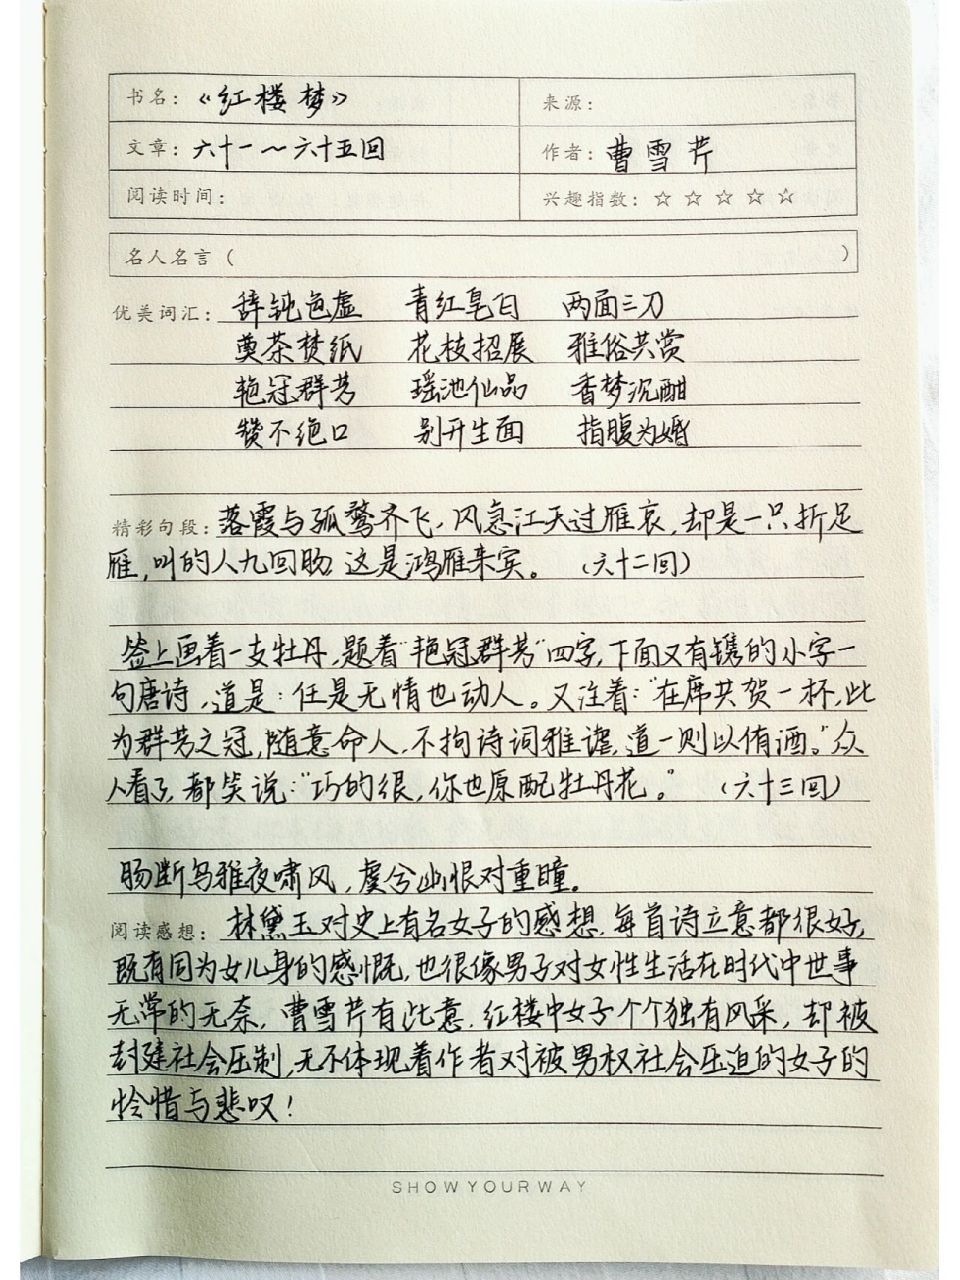 书名：《红楼梦》 来源：
文章：六十一～六十五回 作者：曹雪芹
阅读时间： 兴趣指数：☆☆☆☆☆
名人名言（ ）
优美词汇： 辞钝色虚 青红皂白 两面三刀
奠茶焚纸 花枝招展 雅俗共赏
艳冠群芳 瑶池仙品 香梦沉酣
赞不绝口 别开生面 指腹为婚
精彩句段：落霞与孤鹜齐飞，风急江天过雁哀，却是一只折足
雁，叫的人九回肠，这是鸿雁来宾。（六十二回）
签上画着一支牡丹，题着“艳冠群芳”四字，下面又有镌的小字一
句唐诗，道是：任是无情也动人。又注着：“在席共贺一杯，此
为群芳之冠，随意命人，不拘诗词雅谑，道一则以侑酒。”众
人看了，都笑说：“巧的很，你也原配牡丹花。”（六十三回）
肠断乌骓夜啸风，虞兮幽恨对重瞳。
阅读感想： 林黛玉对史上有名女子的感想，每首诗立意都很好，
既有同为女儿身的感慨，也很像男子对女性生活在时代中世事
无常的无奈，曹雪芹有此意，红楼中女子个个独有风采，却被
封建社会压制，无不体现着作者对被男权社会压迫的女子的
怜惜与悲叹！
SHOW YOUR WAY